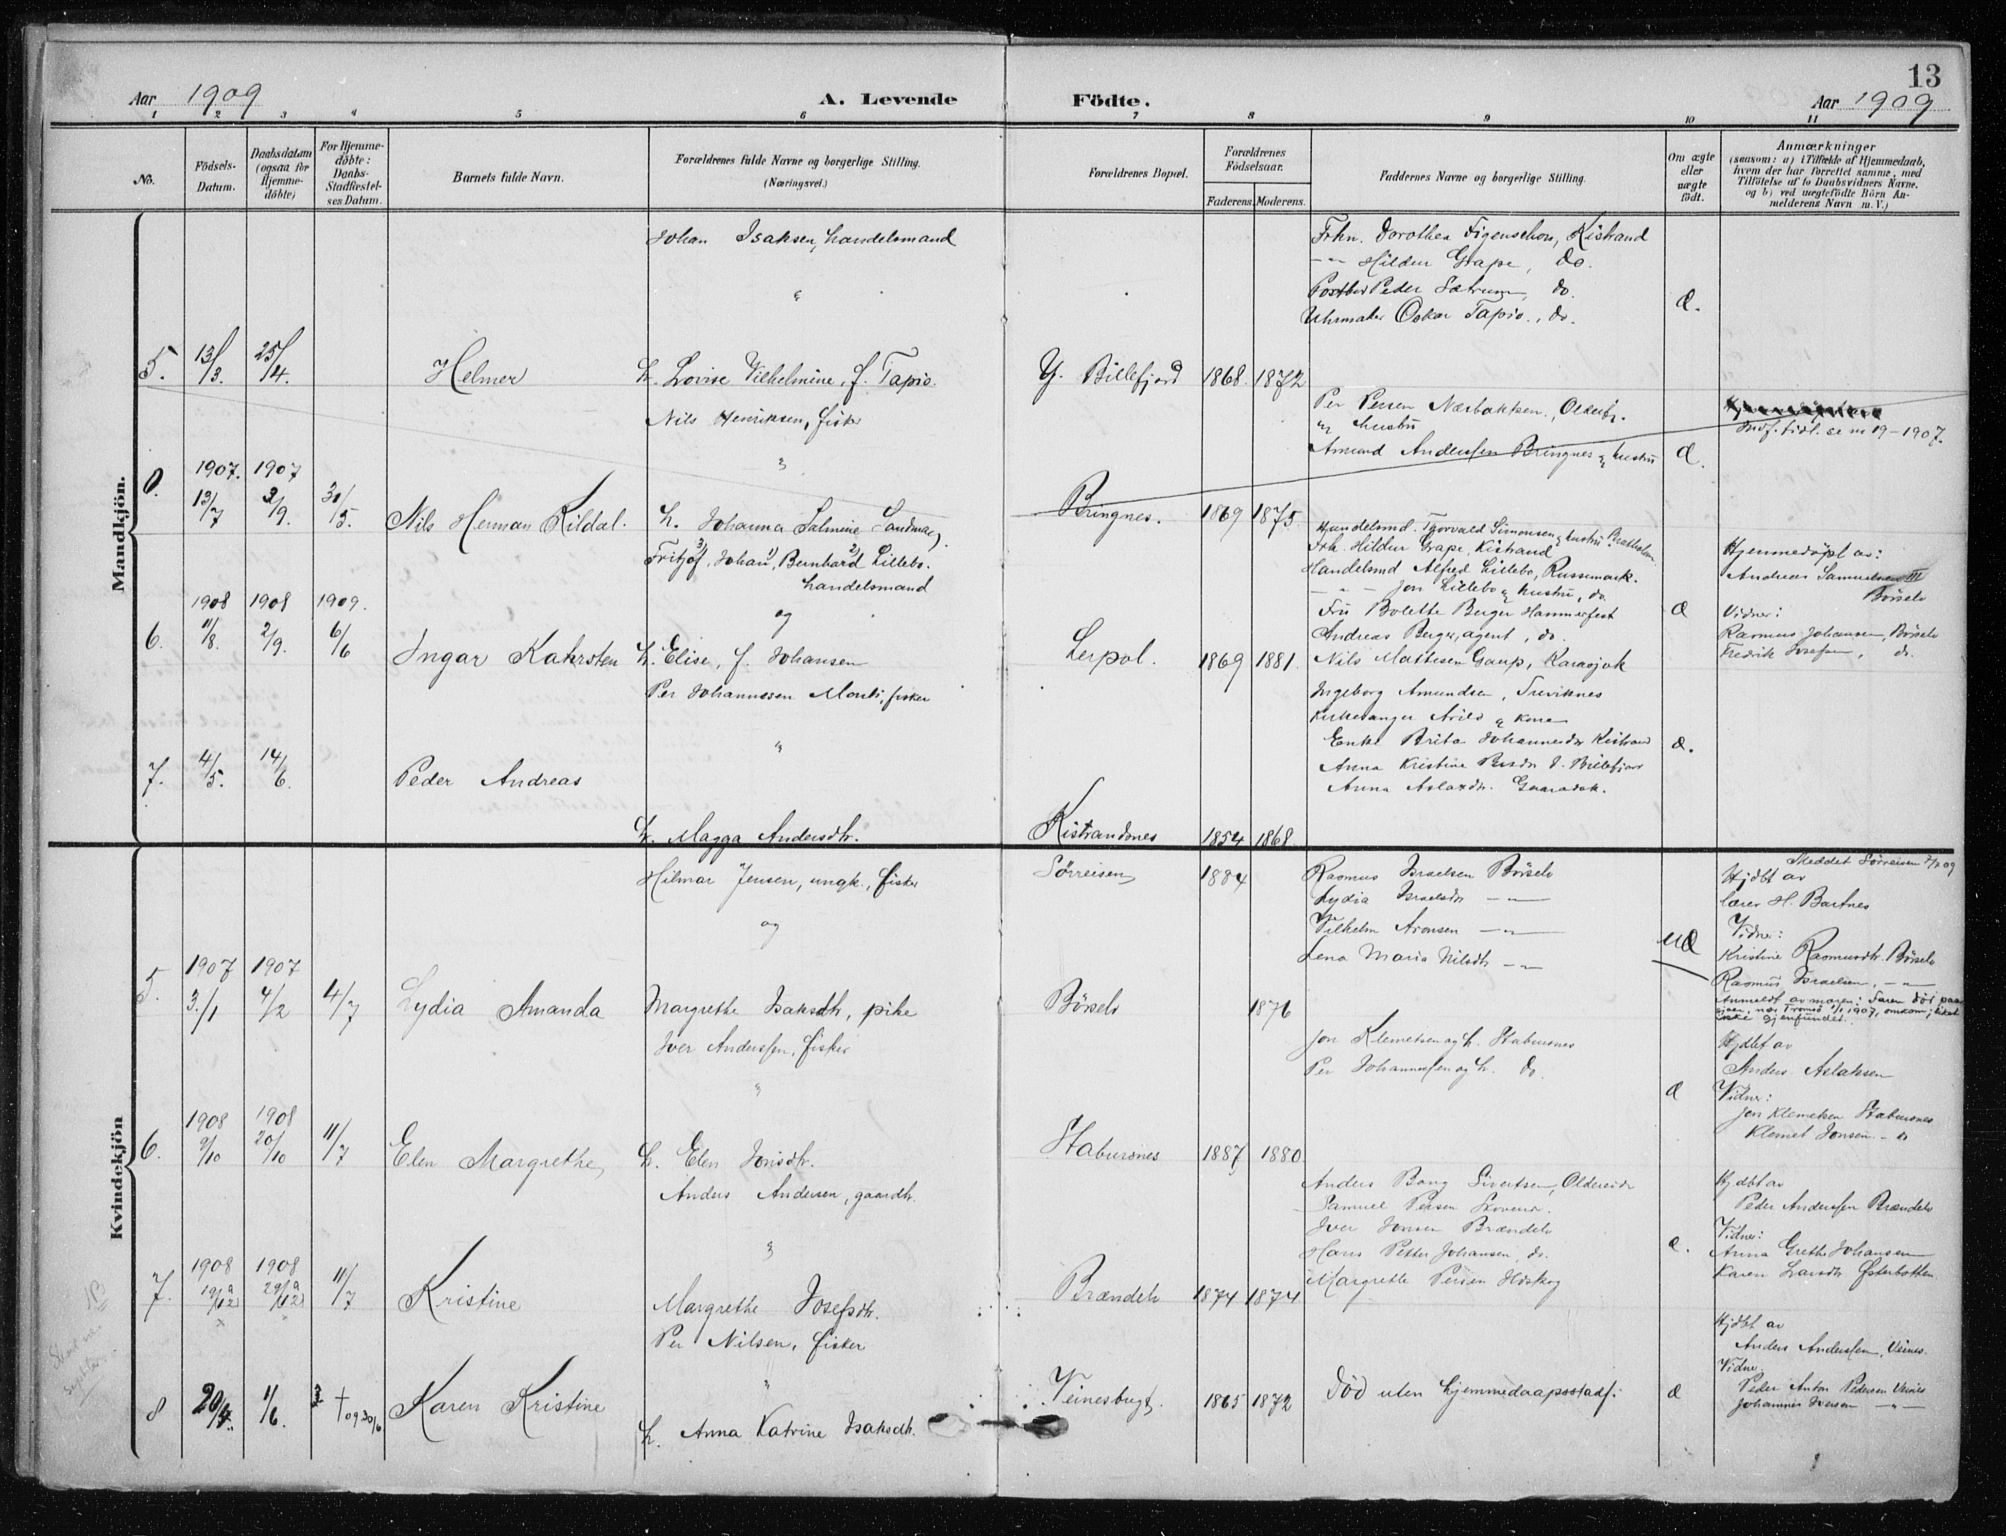 13
Aar 1909
A. Levende Födte.
Aar 1909
1 2 3 4 5 6 7 8 9 10 11
No.
Födsels-
Datum.
Daabsdatum
(ogsaa for
Hjemme-
döbte)
For Hjemme-
döbte:
Daabs-
Stadfæstel-
ses Datum.
Barnets fulde Navn.
Forældrenes fulde Navne og borgerlige Stilling.
(Næringsvei.)
Forældrenes Bopæl.
Forældrenes
Födselsaar.
Faderens. Moderens.
Faddernes Navne og borgerlige Stilling.
Om ægte
eller
uægte
födt.
Anmærkninger
(saasom: a) i Tilfælde af Hjemmedaab,
hvem der har forrettet samme, med
Tilföielse af to Daabsvidners Navne,
og b) ved uægtefödte Börn An-
melderens Navn m. V.)
Mandkjön.
5. 13/3. 25/4. Helmer
Johan Isaksen, handelsmand
"
h. Lovise Vilhelmine, f. Tapio.
Y. Billefjord 1868. 1872
Frkn. Dorothea Figenschou, Kistrand
-"- Hildur Grape, do.
Peder Sætrum, do.
Uhrmaker Oskar Tapio., do.
Æ.
0. 1907. 1907
13/7 3/9. 30/5. Nils Herman Kildal.
Nils Henriksen, fisker
"
h. Johanna Salmine
Bringnes. 1869 1875
Per Persen Næsbakken,
og hustru
Amund Anderssen Bringnes og hustru
Æ.
Indf. tidl. se nr 19-1907.
6. 1908 1908 1909.
11/8. 2/9. 6/6 Ingar Kahrsten
Fritjof, Johan, Bernhard Lillebo.
handelsmand
og
h. Elise, f. Johansen
Lerpol. 1869 1881.
Handelsmd. Torvald Simonsen & hustru
Frk. Hildur Grape, Kistrand
Handelsmd Alfred Lillebo, Russemark.
-"- Jon Lillebo og hustru, do
Fru Bolette Berger Hammerfest
Andreas Berger, agent, do.
Æ
Hjemmedöpt av:
Andreas Samuelsen III
Börselv
Vidner:
Rasmus Johansen, Börselv
Fredrik Josefsen, do.
7. 4/5. 14/6. Peder Andreas
Per Johannessen Monti, fisker
"
h. Magga Andersdtr.
Kistrandnes 1854 1868.
Nils Mathesen Gaup, Karasjok
Ingeborg Amundsen, Treviknes
Kirkesanger Arild & kone
Enke Brita Johannesdtr Kistrand
Anna Kristine Persdtr I. Billefjord
Anna Aslaxdtr.
Æ.
Kvindekjön
5. 1907 1907
3/1 4/2 4/7 Lydia Amanda
Hilmar Jensen, ungk., fisker
og
Margrethe Isaksdtr, pike
Sørreisen 1884
Börselv 1876
Rasmus Israelsen Börselv
Lydia Israelsdtr -"-
Vilhelm Aronsen -"-
Lena Maria Nilsdtr -"-
UÆ
Meddelt Sørreisen
Hjdbt av
lærer H. Bartnes
Vidner:
Kristine Rasmusdtr. Börselv
Rasmus Israelsen, -"-
Anmeldt av moren: Faren död paa
sjöen, nær Tromsö 1907, omkom; liket
ikke gjenfundet.
6. 1908 1908
9/10 20/10 11/7 Elen Margrethe
Iver Anderssen, fisker
"
h. Elen Jonsdtr.
Stabursnes 1887 1880
Jon Klemetsen og h. Stabursnes
Per Johannessen og h. do
Æ
Hjdbt av
Anders Aslaksen
Vidner:
Jon Klemetsen Stabursnes
Klemet Jonsen - do
7. 1908 1908
19/12 29/12 11/7 Kristine
Anders Andersen, gaardbr.
"
Margrethe Josefsdtr.
Brændelv 1874 1874
Anders Bang Sivertsen, Oldereide
Samuel Persen
Iver Jonsen Brændelv
Hans Petter Johansen, do.
Margrethe Persen
Æ.
Hjdbt av
Peder Anderssen Brændelv
Vidner:
Anna Grethe Johansen
Karen Larsdtr Østerbotten
NB
8 20/4. 1/6. † 09 30/6 Karen Kristine
Per Nilsen, fisker
"
h. Anna Katrine Isaksdtr.
Veinesbugt. 1865 1872
Död uten hjemmedaapsstadf.
Æ
Hjdbt av
Anders Anderssen, Veines.
Vidner:
Peder Anton Pedersen Veines
Johannes Iversen -"-